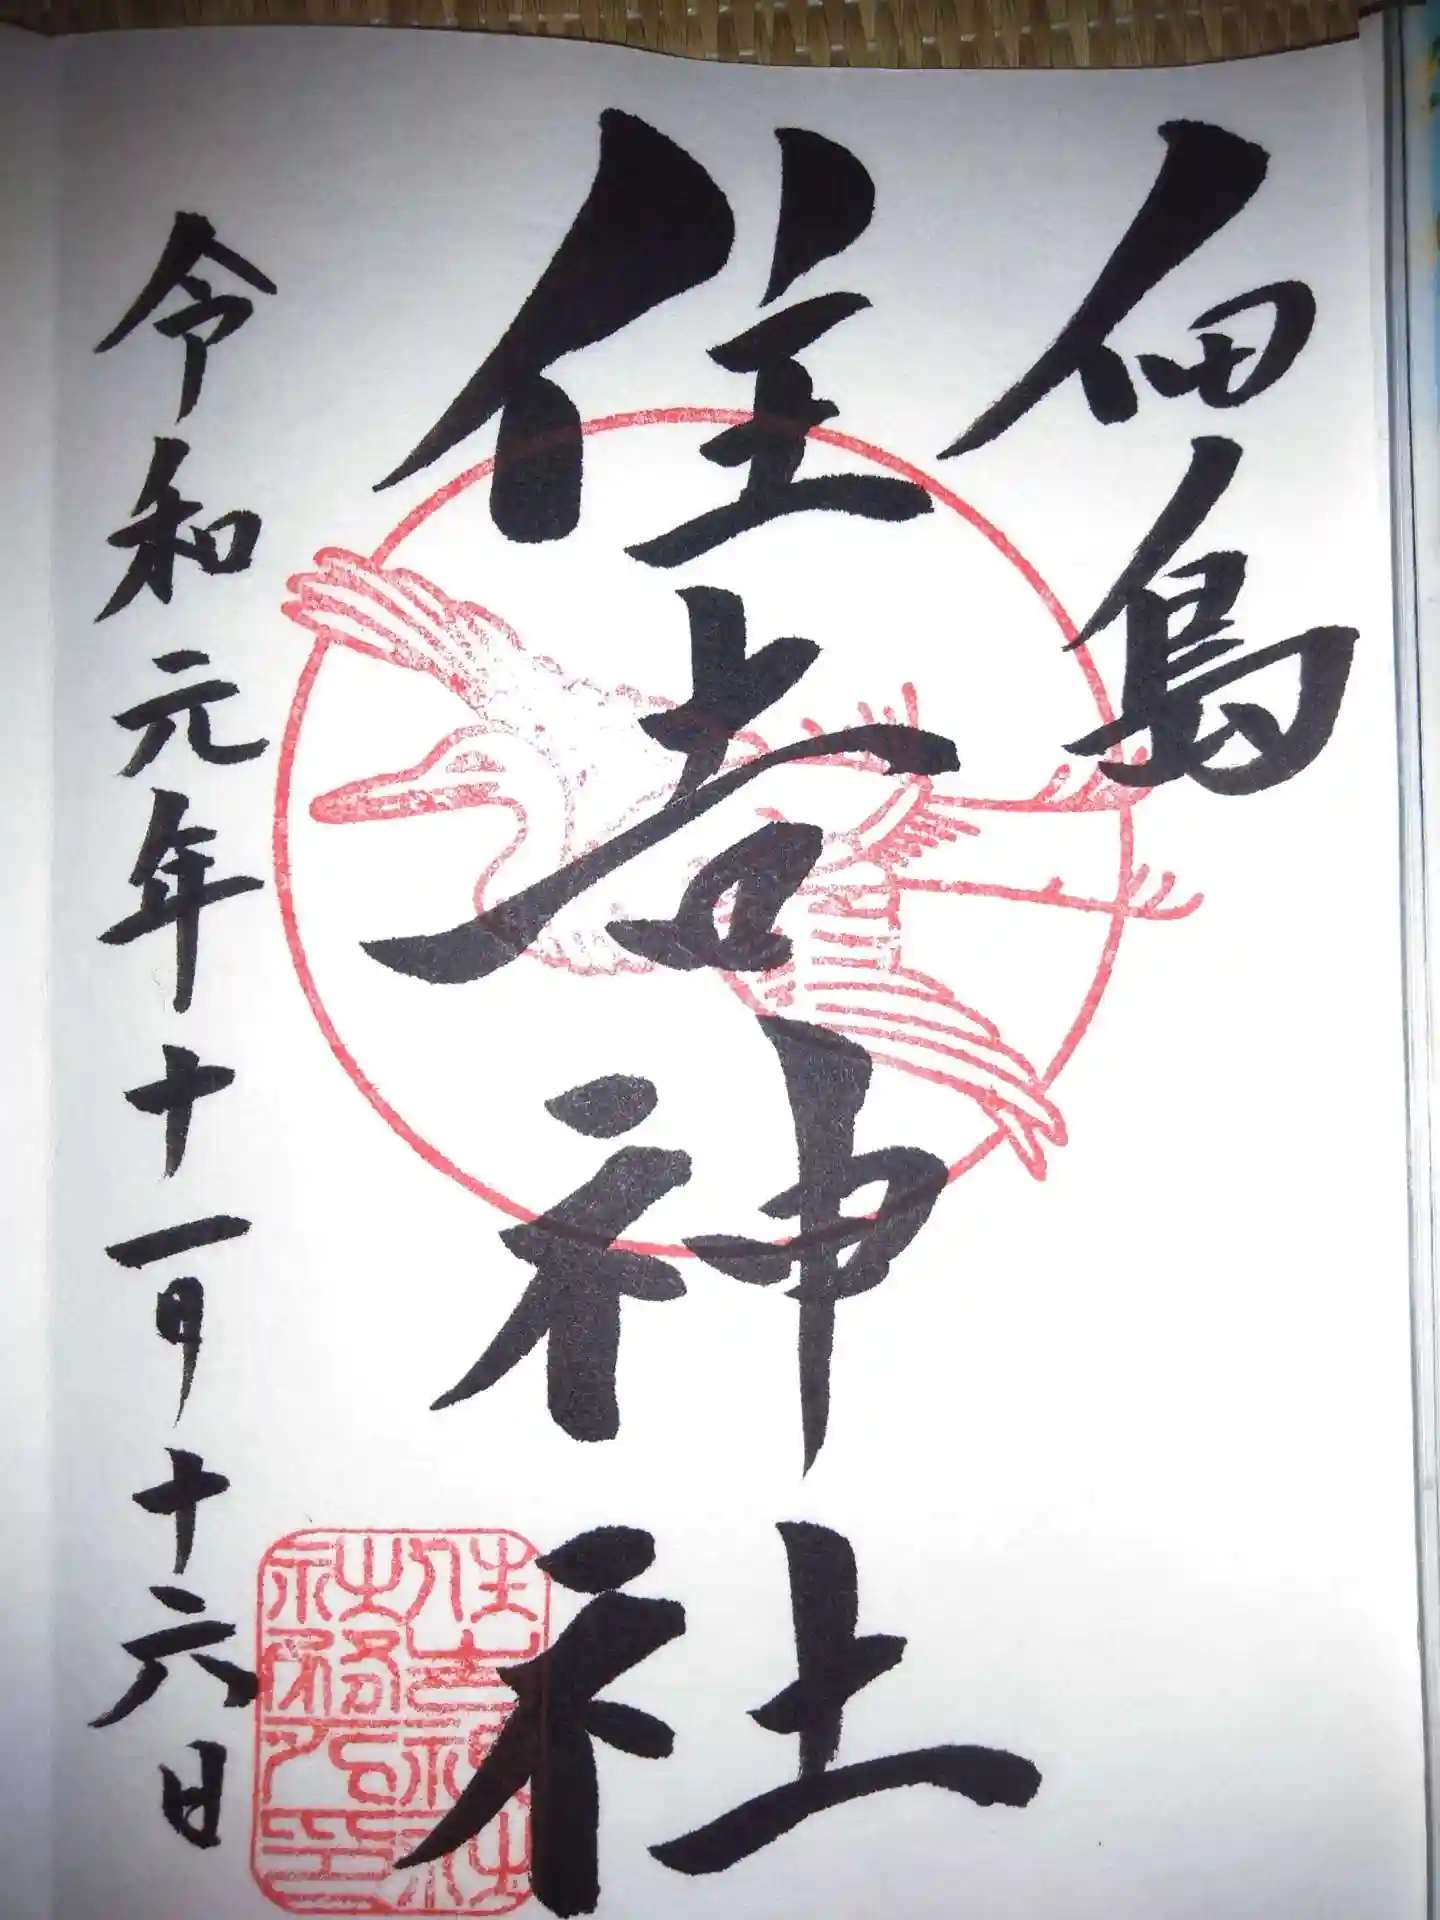 佃島
住吉神社
令和元年十一月十六日
住吉神社
社務所印